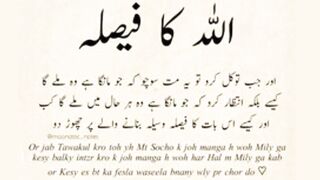 اللہ کا فیصلہ
اور جب توکل کرو تو یہ مت سوچو کہ جو مانگا ہے وہ ملے گا
کیسے بلکہ انتظار کرو کہ جو مانگا ہے وہ ہر حال میں ملے گا کب
اور کیسے اس بات کا فیصلہ وسیلہ بنانے والے پر چھوڑ دو ♡
Or jab Tawakul kro toh yh Mt Socho k joh manga h woh Mily ga
kesy balky intzr kro k joh manga h woh har Hal m Mily ga kab
or Kesy es bt ka fesla waseela bnany wly pr chor do ♡